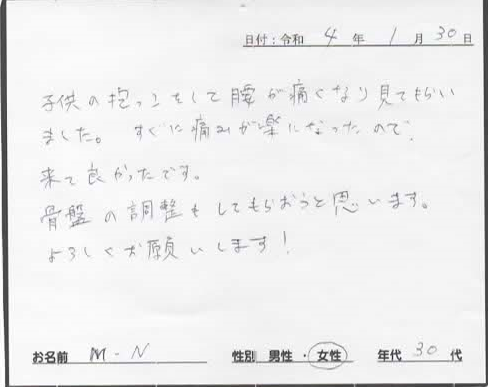 日付：令和 4 年 1 月 30 日
子供の抱っこをして腰が痛くなり見てもらい
ました。 すぐに痛みが楽になったので、
来て良かったです。
骨盤の調整もしてもらおうと思います。
よろしくお願いします！
お名前 M-N 性別 男性・女性 年代 30 代